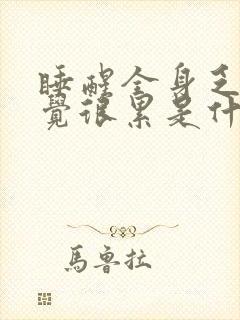 睡醒全身乏
覺很累是什
馬魯拉